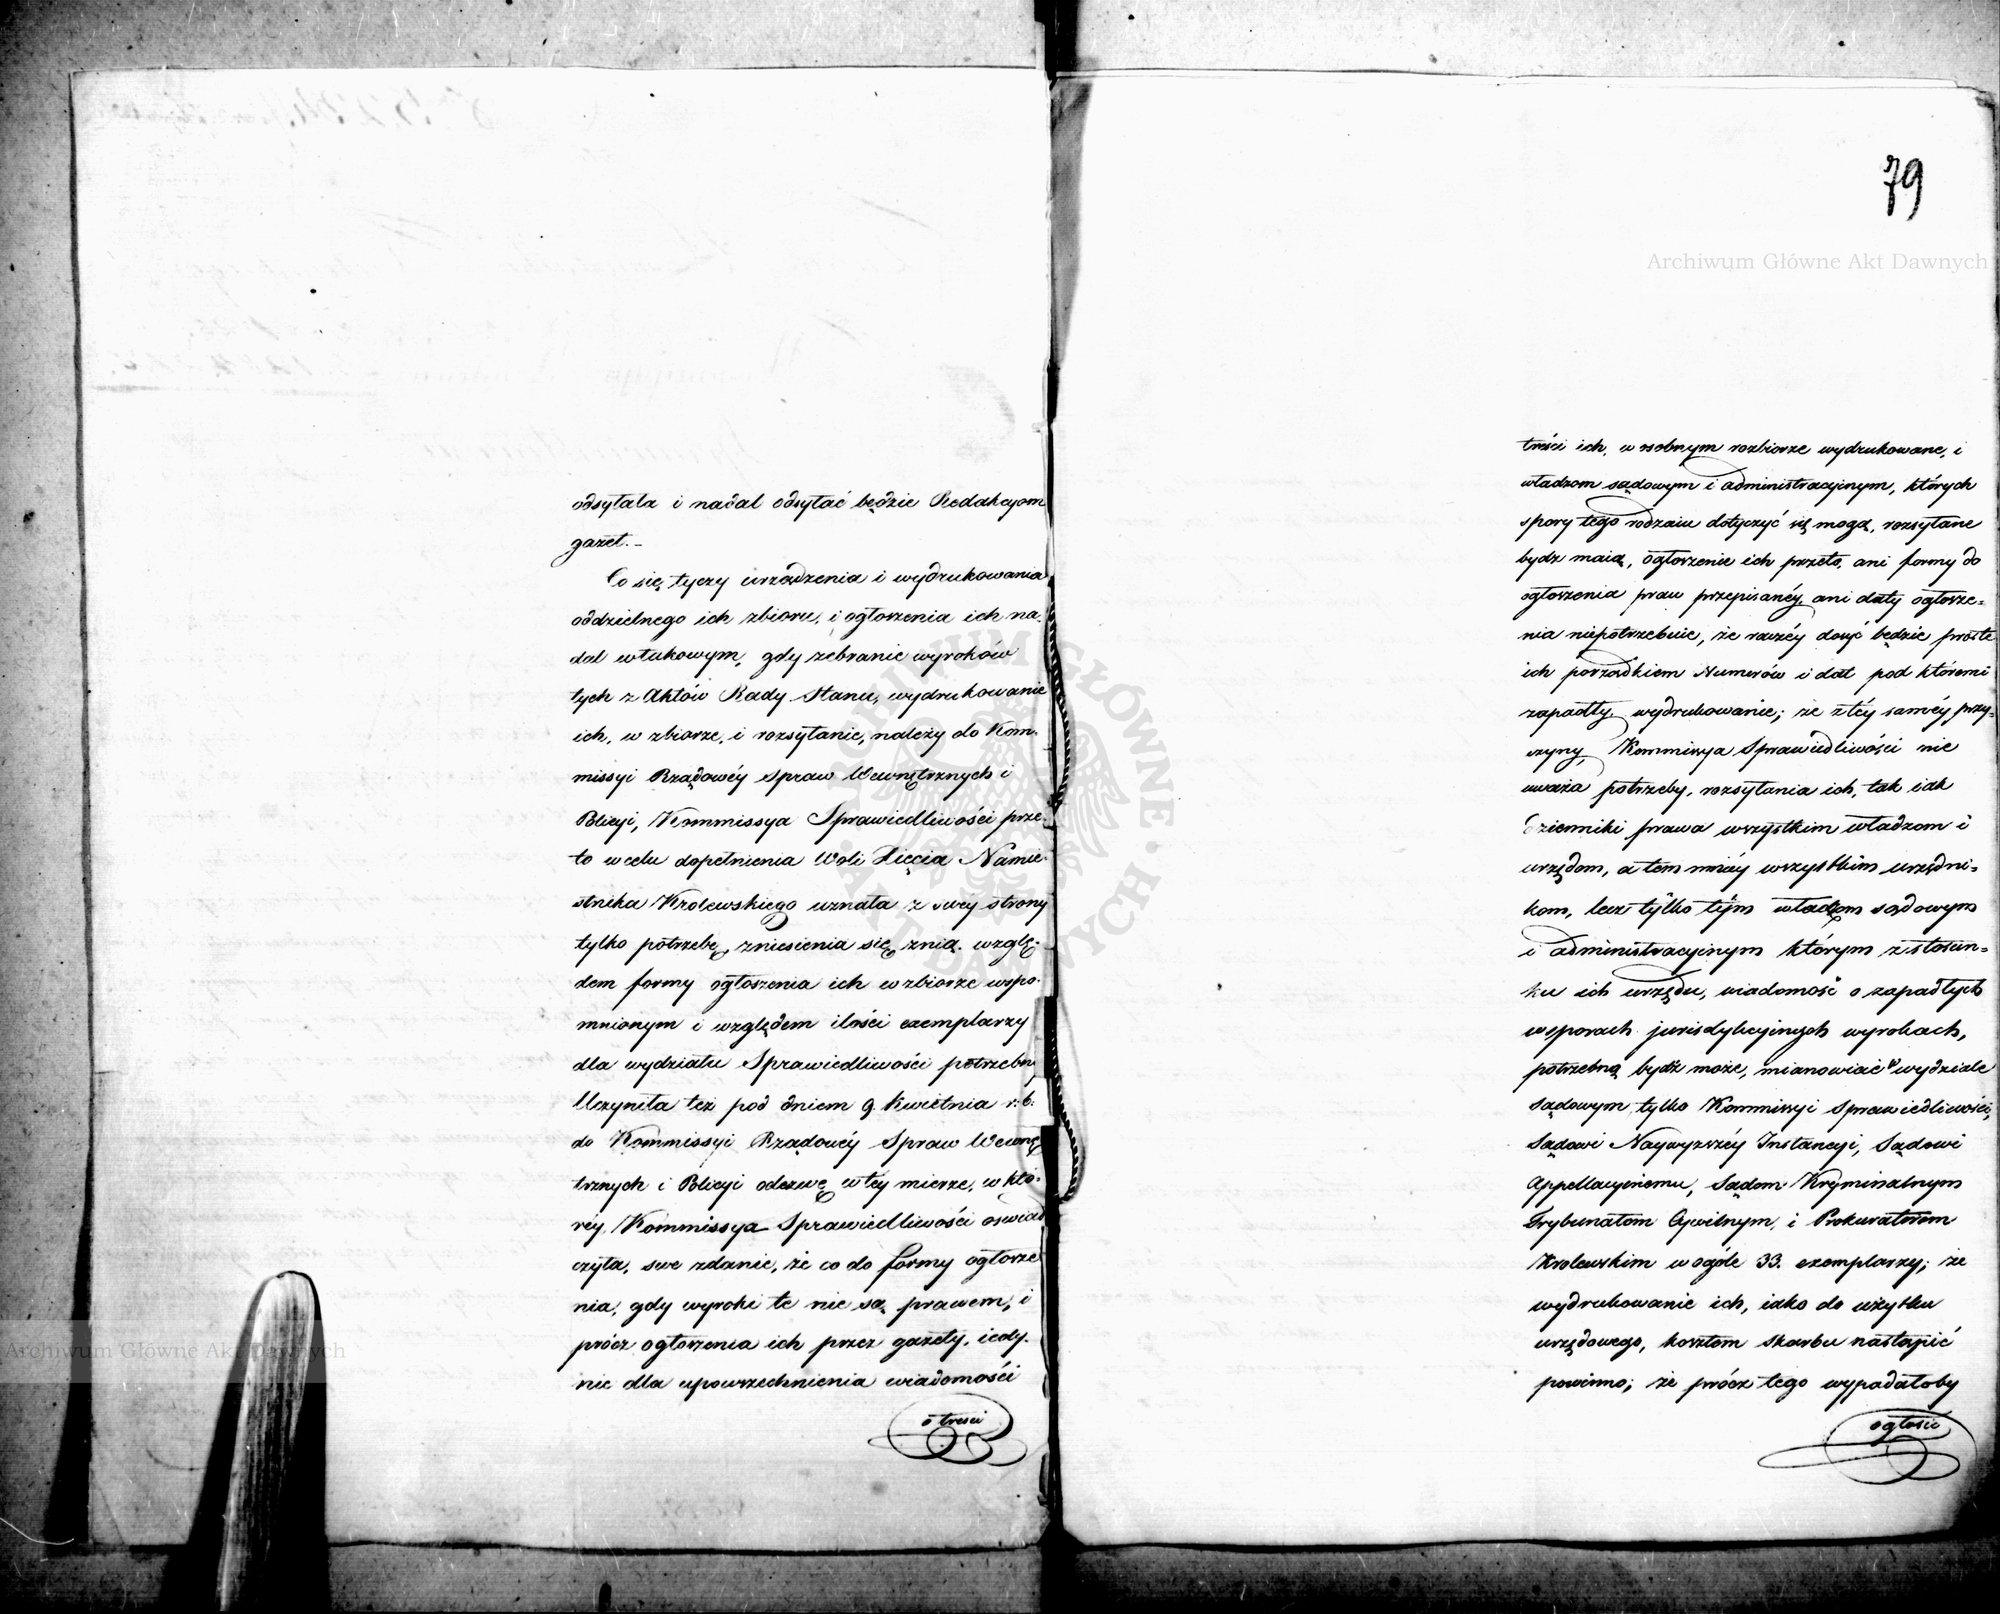 odsyłała i nadal odsyłać będzie Redakcyom
gazet.-
Co się tyczy urządzenia i wydrukowania
oddzielnego ich zbioru, i ogłoszenia ich na-
dal w takowym, gdy zebranie wyroków
tych z Aktów Rady Stanu, wydrukowanie
ich, w zbiorze, i rozsyłanie, należy do Kom-
missyi Rządowéy Spraw Wewnętrznych i
Policyi, Kommissya Sprawiedliwości prze-
to w celu dopełnienia Woli Xięcia Namie-
stnika Krolewskiego uznała z swey strony
tylko potrzebę zniesienia się z nią, wzglę-
dem formy ogłoszenia ich w zbiorze wspo-
mnionym i względem ilości exemplarzy
dla wydziału Sprawiedliwości potrzebn
Uczyniła też pod dniem 9. Kwietnia r: b:
do Kommissyi Rządowéy Spraw Wewnę
trznych i Policyi odezwę w téy mierze, w któ-
réy, Kommissya Sprawiedliwości oswiad
czyła, swe zdanie, że co do formy ogłosze
nia, gdy wyroki te nie są prawem, i
prócz ogłoszenia ich przez gazety, iedy-
nie dla upowszechnienia wiadomości
o tresci
79
Archiwum Główne Akt Dawnych
treści ich, w osobnym rozbiorze wydrukowane, i
władzom sądowym i administracyinym, których
spory tego rodzaiu dotyczyć się mogą, rozsyłane
bydz maią, ogłoszenie ich przeto, ani formy do
ogłoszenia praw przepisanéy, ani daty ogłosze-
nia niepotrzebuie, że raczéy dosyć będzie proste
ich porządkiem Numerów i dat pod któremi
zapadły wydrukowanie; że z téy saméy przy-
czyny, Kommissya Sprawiedliwości nie
uważa potrzeby, rozsyłania ich, tak iak
Dzienniki prawa wszystkim władzom i
urzędom, a tem mniéy wszystkim urzędni-
kom, lecz tylko tym władzom sądowym
i administracyinym którym z stosun-
ku ich urzędu, wiadomość o zapadłych
w sporach jurisdykcyinych wyrokach,
potrzebną bydź może, mianowicie w wydziale
sądowym tylko Kommissyi Sprawiedliwości,
Sądowi Naywyzszéy Instancyi, Sądowi
Appellacyinemu, Sądom Kryminalnym
Trybunałom Cywilnym, i Prokuratorom
Krolewskim w ogóle 33. exemplarzy; że
wydrukowanie ich, iako do użytku
urzędowego, kosztem skarbu nastąpić
powinno; że prócz tego wypadałoby
ogłosić
Archiwum Główne Akt Dawnych
ARCHIWUM GŁÓWNE AKT DAWNYCH